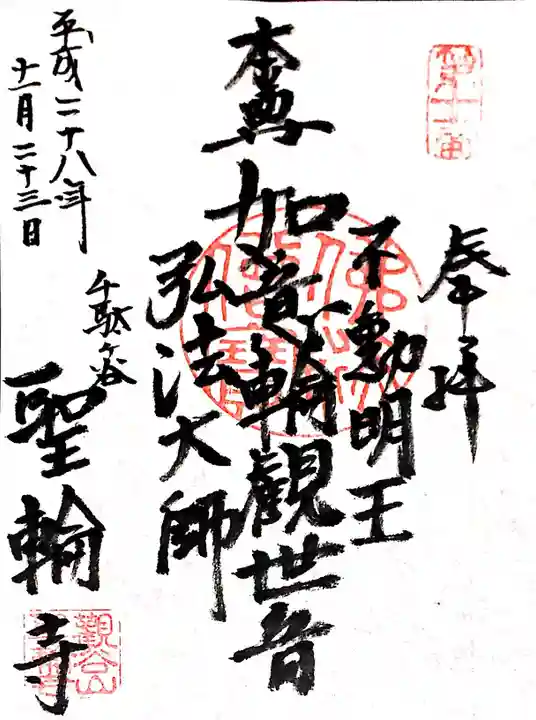 奉拝
不動明王
本尊
如意輪観世音
弘法大師
千駄ヶ谷
聖輪寺
平成二十八年
十一月二十三日
観谷山